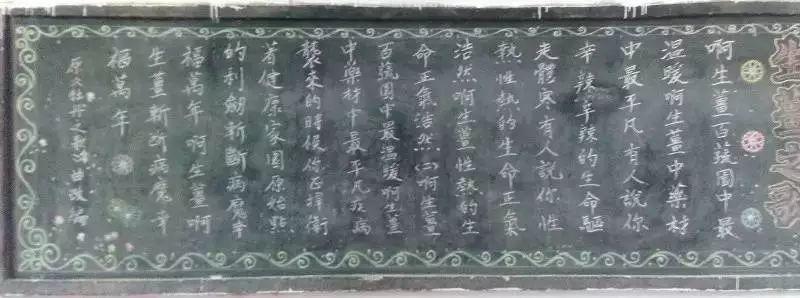 生薑之歌
啊生薑百蔬園中最
温暖啊生薑中藥材
中最平凡有人説你
辛辣辛辣的生命驅
走體寒有人說你性
熱性熱的生命正氣
浩然啊生薑性熱的生
命正氣浩然(二)啊生薑
百蔬園中最温暖啊生薑
中藥材中最平凡疾病
襲來的時候你正捍衛
着健康家園原始點
的利劍斬斷病魔幸
福萬年啊生薑啊
生薑斬斷病魔幸
福萬年
原
牡丹之歌
曲改編